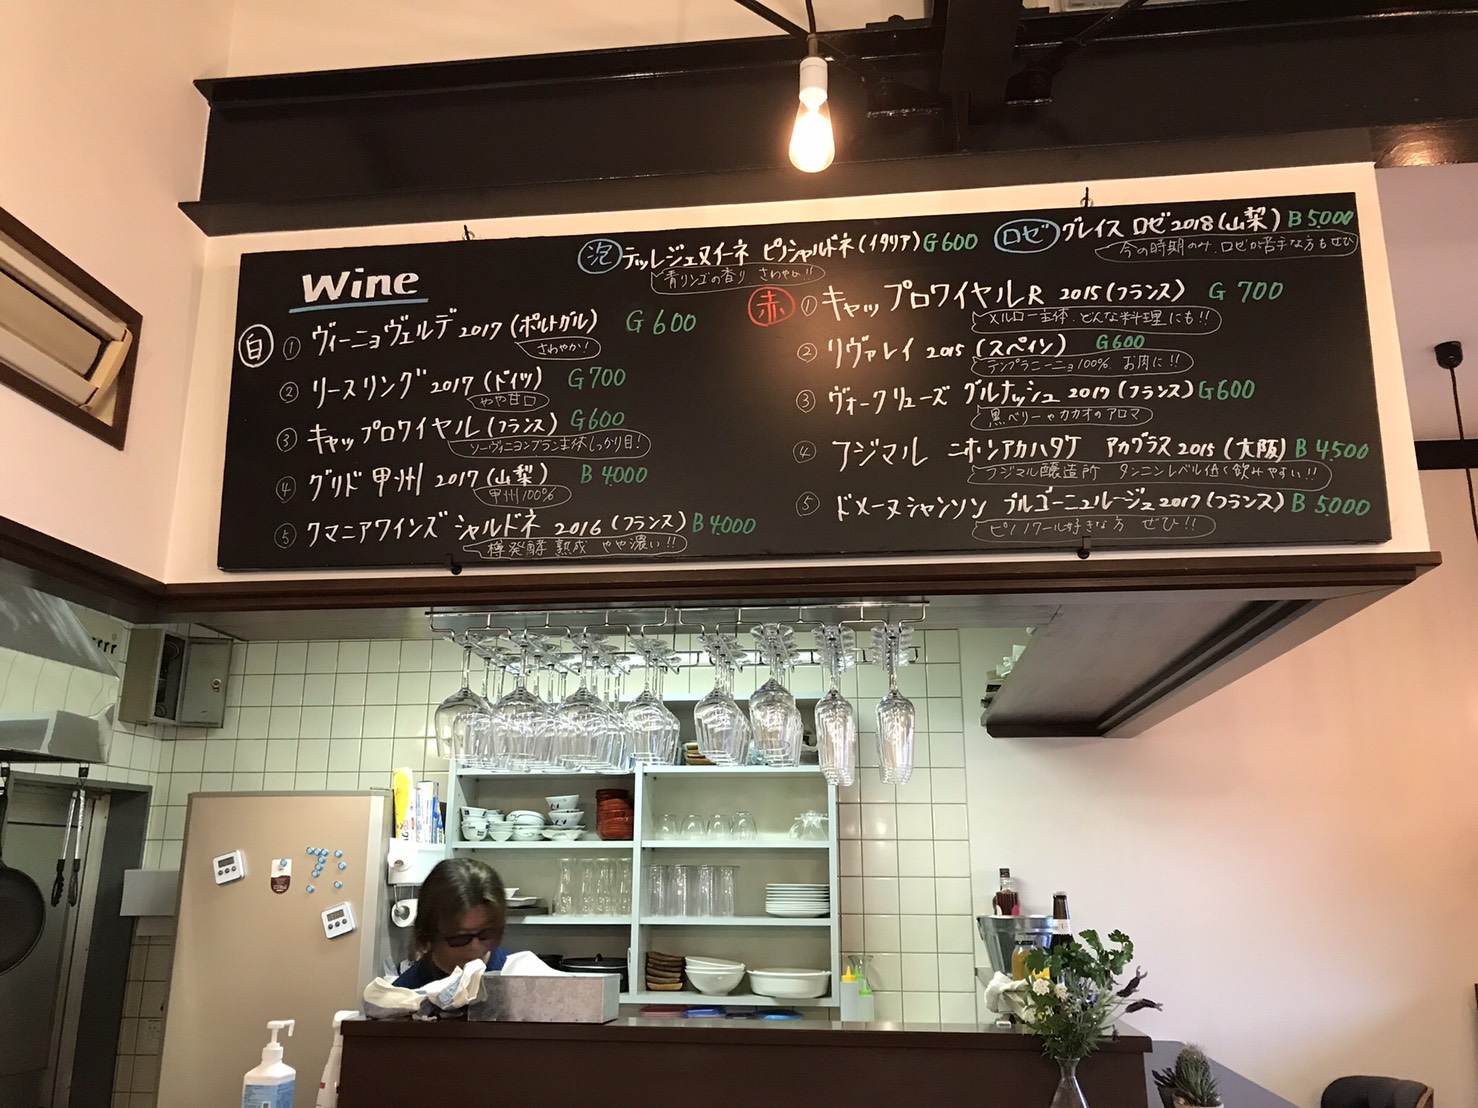 Wine
泡 テッレジェヌイーネ ピノシャルドネ(イタリア) G600
青リンゴの香り さわやか!!
ロゼ グレイス ロゼ2018(山梨) B5,000
今の時期のみ、ロゼが苦手な方もぜひ
白 ① ヴィーニョヴェルデ 2017 (ポルトガル) G600
さわやか!
② リースリング 2017 (ドイツ) G700
やや甘口
③ キャップロワイヤル (フランス) G600
ソーヴィニヨンブラン主体しっかり目!
④ グリド甲州 2017 (山梨) B4000
甲州100%
⑤ クマニアワインズ シャルドネ 2016 (フランス) B4.000
樽発酵 熟成 やや濃い!!
赤 ① キャップロワイヤルR 2015 (フランス) G700
メルロー主体、どんな料理にも!!
② リヴァレイ 2015 (スペイン) G600
テンプラニーニョ100%. お肉に!!
③ ヴォークリューズ グルナッシュ 2017 (フランス) G600
黒ベリーやカカオのアロマ
④ フジマル ニホンアカハタケ アカグラス 2015 (大阪) B4,500
フジマル醸造所 タンニンレベル低く飲みやすい!!
⑤ ドメーヌシャンソン ブルゴーニュルージュ 2017 (フランス) B5,000
ピノノワール好きな方 ぜひ!!